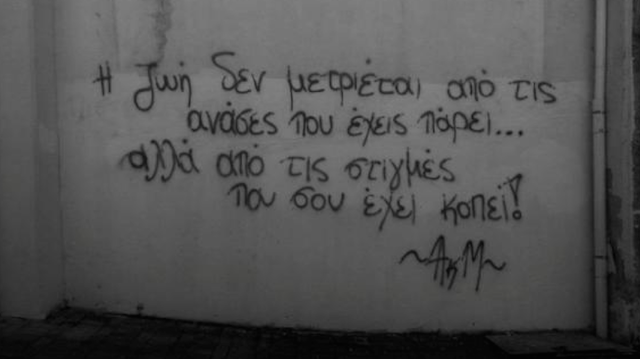 Η ζωή δεν μετριέται από τις
ανάσες που έχεις πάρει...
αλλά από τις στιγμές
που σου έχει κοπεί!
~ΑκΜ~